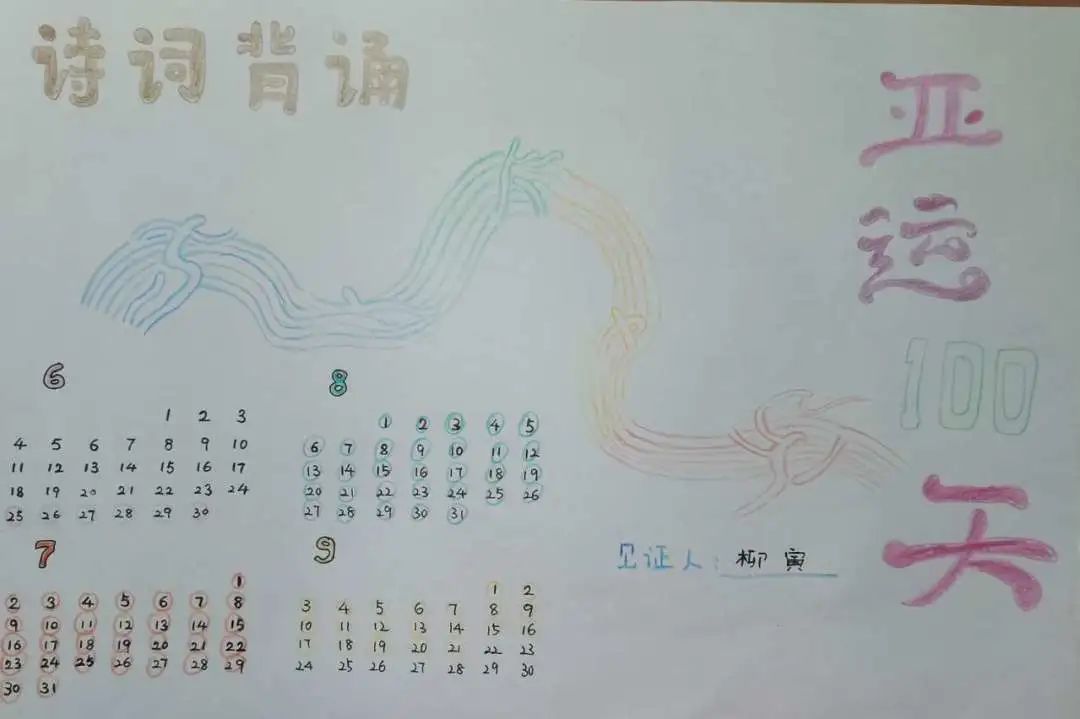 诗词背诵
亚运100天
6
1 2 3
4 5 6 7 8 9 10
11 12 13 14 15 16 17
18 19 20 21 22 23 24
25 26 27 28 29 30
8
1 2 3 4 5
6 7 8 9 10 11 12
13 14 15 16 17 18 19
20 21 22 23 24 25 26
27 28 29 30 31
7
1
2 3 4 5 6 7 8
9 10 11 12 13 14 15
16 17 18 19 20 21 22
23 24 25 26 27 28 29
30 31
9
1 2
3 4 5 6 7 8 9
10 11 12 13 14 15 16
17 18 19 20 21 22 23
24 25 26 27 28 29 30
见证人：柳寅